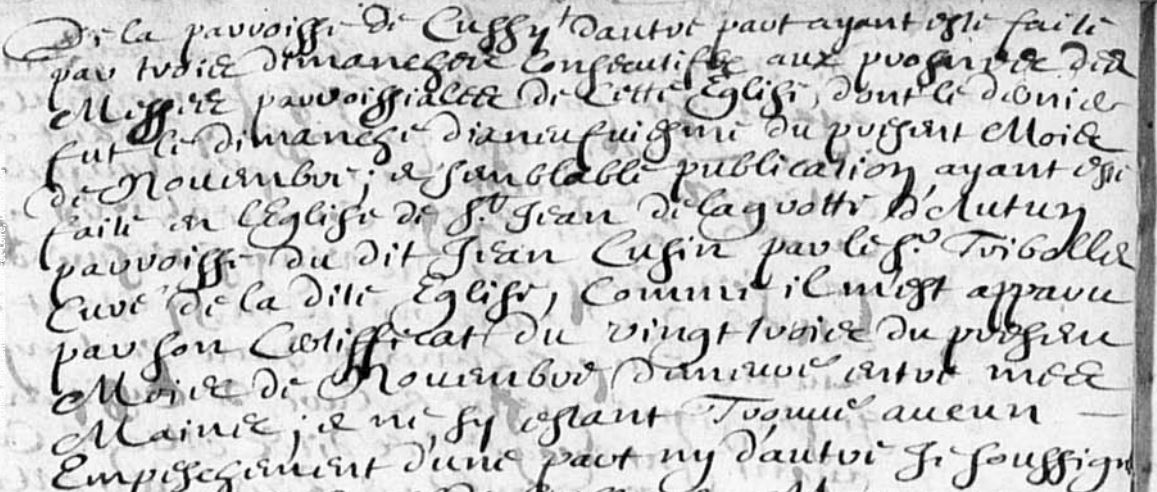 De la parroisse de Cussy, d'autre part ayant esté faite
par trois dimanches consecutifs aux prosnes des
Messes parroissiales de cette Eglise, dont le dernier
fut le dimanche dianeufuiesme du present Mois
de Novembre; et semblable publication ayant esté
faite en l'Eglise de St Jean de la grotte d'Autun
parroisse du dit Jean Cusin par le Sr Tribollet
Curé de la dite Eglise, comme il m'est apparu
par son Certifficat du vingt trois du presen
Mois de Novembre demeuré entre mes
Mains; et ne sy estant trouvé aucun
Empeschement d'une part ny d'autre Je soussign